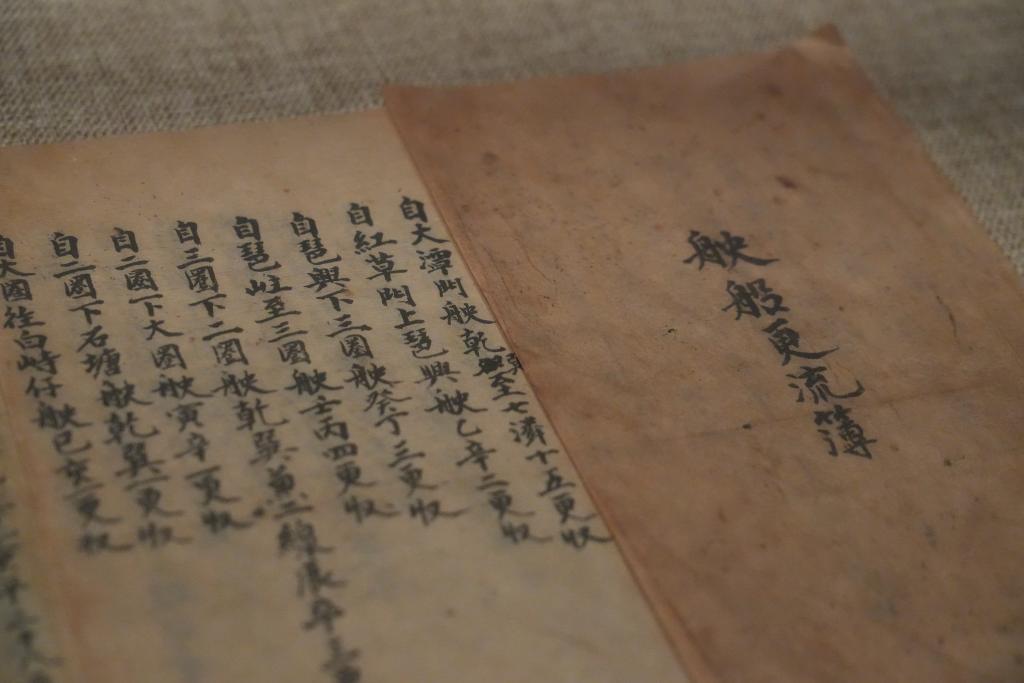 舦船更流簿
自大潭門舦乾巽至七潹十五更收
自紅草門上琶興舦乙辛二更收
自琶興下三圈舦癸丁三更收
自琶峙至三圈舦壬丙四更收
自三圈下二圈舦乾巽
自二圈下大圈舦寅辛一更收
自二圈下石塘舦乾巽一更收
自大圈往白峙仔舦巳亥一更收